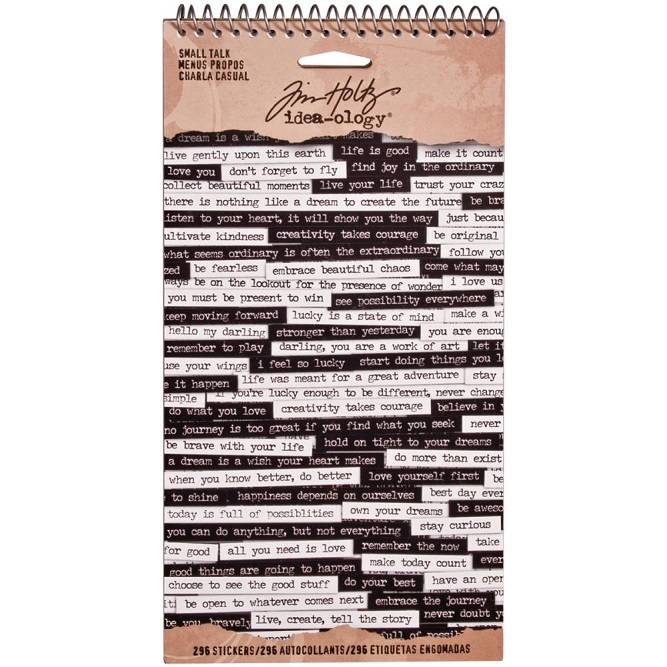 SMALL TALK
MENUS PROPOS
CHARLA CASUAL
Tim Holtz
idea-ology®
a dream is a wish your heart makes
live gently upon this earth life is good make it count
love you don't forget to fly find joy in the ordinary
collect beautiful moments live your life trust your craz
there is nothing like a dream to create the future be bra
listen to your heart, it will show you the way just becau
ultivate kindness creativity takes courage be original
what seems ordinary is often the extraordinary follow you
zed be fearless embrace beautiful chaos come what may
ways be on the lookout for the presence of wonder i love us
you must be present to win see possibility everywhere
keep moving forward lucky is a state of mind make a wi
hello my darling stronger than yesterday you are enoug
remember to play darling, you are a work of art let it
use your wings i feel so lucky start doing things you lo
e it happen life was meant for a great adventure stay
simple if you're lucky enough to be different, never change
do what you love creativity takes courage believe in y
no journey is too great if you find what you seek never
be brave with your life hold on tight to your dreams
a dream is a wish your heart makes do more than exist
when you know better, do better love yourself first be
to shine happiness depends on ourselves best day ever
today is full of possiblities own your dreams be aweso
you can do anything, but not everything stay curious
for good all you need is love remember the now take
good things are going to happen make today count ever
choose to see the good stuff do your best have an open
it be open to whatever comes next embrace the journey
be you, bravely live, create, tell the story never doubt yo
full of possib
296 STICKERS/296 AUTOCOLLANTS/296 ETIQUETAS ENGOMADAS